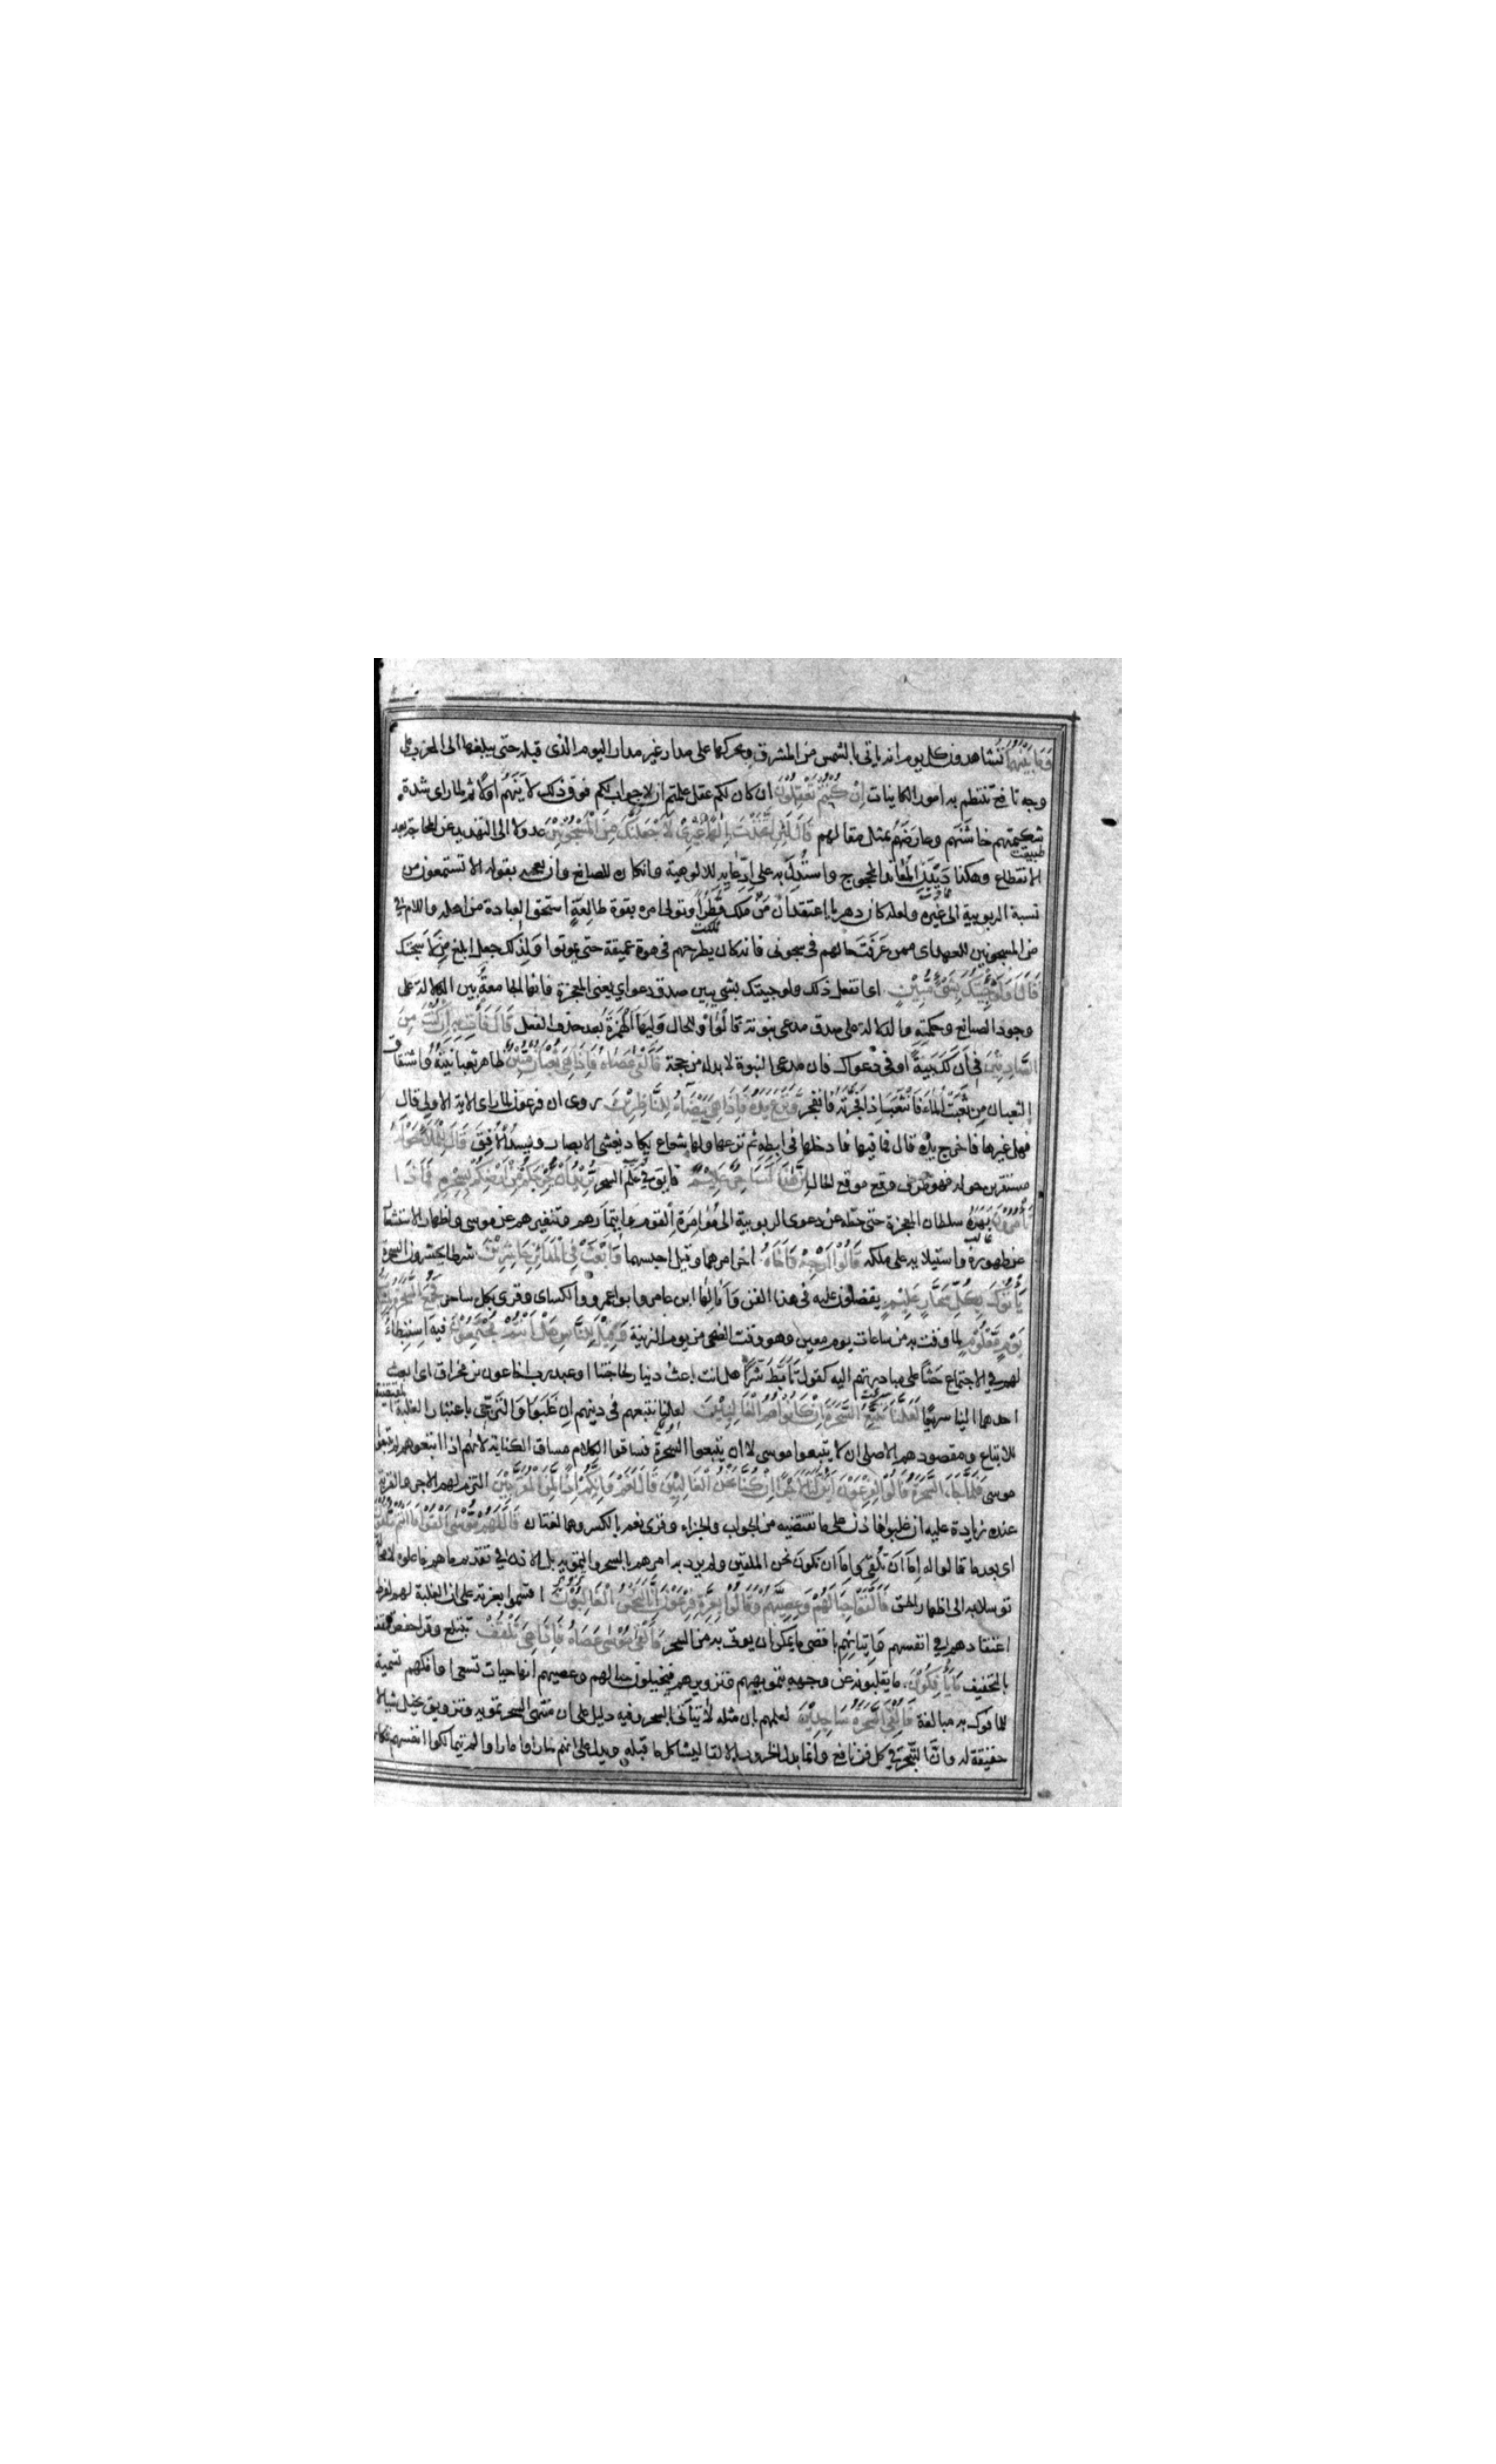 وَمَا بَيْنَهُمَا تشاهدون كل يوم انه ياتى بالشمس من المشرق ويحركها على مدار غير مدار اليوم الذى قبله حتى يبلغها الى المغرب على
وجه نافع تنتظم به امور الكاينات اِنْ كُنْتُمْ تَعْقِلُوْنَ ان كان لكم عقل علمتم ان لا جواب لكم فوق ذلك لَايَنَهُم اوّلا ثم لما راى شدة
شكيمتهم خاشنهم وعارضهم بمثل مقالهم قَالَ لَئِنِ اتَّخَذْتَ اِلٰهًا غَيْرِيْ لَاَجْعَلَنَّكَ مِنَ الْمَسْجُوْنِيْنَ عدولا الى التهديد عن المحاجة بعد
الانقطاع وهكذا دَيْدَن المُعَاند المحجوج واستُدِلّ به على ادّعايه للالوهية وانكاره للصانع وان تعجبه بقوله الا تستمعون من
نسبة الربوبية الى غيره ولعله كان دهريا اعتقد ان مَنْ مَلَكَ قُطْرًا وتولى امره بقوة طالعة استحق العبادة من اهله واللام فى
من المسجونين للعهد اى ممن عَرَفْتَ حالهم فى سجونى فانه كان يطرحهم فى هوة عميقة حتى يموتوا ولذلك جعل ابلغ من لاسجنك
قَالَ اَوَلَوْ جِئْتُكَ بِشَيْءٍ مُّبِيْنٍ اى اتفعل ذلك ولو جيتك بشى يبين صدق دعواي يعنى المعجزة فانها الجامعة بين الدلالة على
وجود الصانع وحكمته والدلالة على صدق مدعى نبوته قالوا والحال وليها الهمزة بعد حذف الفعل قَالَ فَأْتِ بِهٖٓ اِنْ كُنْتَ مِنَ
الصَّادِقِيْنَ فى ان لك بينة او فى دعواك فان مدعى النبوة لا بد له من حجة فَاَلْقٰى عَصَاهُ فَاِذَا هِيَ ثُعْبَانٌ مُّبِيْنٌ ظاهر ثعبانيته واشتقاق
الثعبان من ثعبت الماء فانثعب اذا فجرته فانفجر وَنَزَعَ يَدَهٗ فَاِذَا هِيَ بَيْضَآءُ لِلنَّاظِرِيْنَ روى ان فرعون لما راى الاية الاولى قال
فهل غيرها فاخرج يده قال فما فيها فادخلها فى ابطه ثم نزعها ولها شعاع يكاد يغشى الابصار ويسد الافق قَالَ لِلْمَلَاِ حَوْلَهٗ
مستقرين حوله فهو ظرف وقع موقع الحال اِنَّ هٰذَا لَسَاحِرٌ عَلِيْمٌ فايق فى علم السحر يُرِيْدُ اَنْ يُّخْرِجَكُمْ مِّنْ اَرْضِكُمْ بِسِحْرِهٖ فَمَاذَا
تَأْمُرُوْنَ بهره سلطان المعجزة حتى حطه عن دعوى الربوبية الى مؤامرة القوم وايتمارهم وتنفيرهم عن موسى واظهار الاستشعار
عن ظهوره واستيلايه على ملكه قَالُوْٓا اَرْجِهْ وَاَخَاهُ اخر امرهما وقيل احبسهما وَابْعَثْ فِى الْمَدَآئِنِ حَاشِرِيْنَ شرطا يحشرون السحرة
يَأْتُوْكَ بِكُلِّ سَحَّارٍ عَلِيْمٍ يفضلون عليه فى هذا الفن وامالها ابن عامر وابو عمرو والكساى وقرى بكل ساحر فَجُمِعَ السَّحَرَةُ لِمِيْقَاتِ
يَوْمٍ مَّعْلُوْمٍ لما وقت به من ساعات يوم معين وهو وقت الضحى من يوم الزينة وَقِيْلَ لِلنَّاسِ هَلْ اَنْتُمْ مُّجْتَمِعُوْنَ فيه استبطاء
لهم فى الاجتماع حثا على مبادرتهم اليه كقول تأبط شرا هل انت باعث دينار لحاجتنا او عبد رب اخا عون بن مخراق اى ابعث
احدهما الينا سريعا لَعَلَّنَا نَتَّبِعُ السَّحَرَةَ اِنْ كَانُوْا هُمُ الْغَالِبِيْنَ لعلنا نتبعهم فى دينهم ان غلبوا والترجى باعتبار الغلبة المقتضية
للاتباع ومقصودهم الاصلى ان لا يتبعوا موسى لا ان يتبعوا السحرة فساقوا الكلام مساق الكناية لانهم اذا اتبعوهم لم يتبعوا
موسى فَلَمَّا جَآءَ السَّحَرَةُ قَالُوْا لِفِرْعَوْنَ اَئِنَّ لَنَا لَاَجْرًا اِنْ كُنَّا نَحْنُ الْغَالِبِيْنَ قَالَ نَعَمْ وَاِنَّكُمْ اِذًا لَّمِنَ الْمُقَرَّبِيْنَ التزم لهم الاجر والقربة
عنده زيادة عليه ان غلبوا فاذن على ما تقتضيه من الجواب والجزاء وقرى نعم بالكسر وهما لغتان قَالَ لَهُمْ مُّوْسٰٓى اَلْقُوْا مَآ اَنْتُمْ مُّلْقُوْنَ
اى بعد ما قالوا له اما ان تلقى واما ان نكون نحن الملقين ولم يرد به امرهم بالسحر والتمويه بل الاذن فى تقديم ما هم فاعلوه لا محالة
توسلا به الى اظهار الحق فَاَلْقَوْا حِبَالَهُمْ وَعِصِيَّهُمْ وَقَالُوْا بِعِزَّةِ فِرْعَوْنَ اِنَّا لَنَحْنُ الْغَالِبُوْنَ اقسموا بعزته على ان الغلبة لهم لفرط
اعتقادهم فى انفسهم واتيانهم باقصى ما يمكن ان يوتى به من السحر فَاَلْقٰى مُوْسٰى عَصَاهُ فَاِذَا هِيَ تَلْقَفُ تبتلع وقرا حفص تلقف
بالتخفيف مَا يَأْفِكُوْنَ ما يقلبونه عن وجهه بتمويههم وتزويرهم فيخيلون حبالهم وعصيهم انها حيات تسعى او افكهم تسمية
للمافوك به مبالغة فَاُلْقِيَ السَّحَرَةُ سَاجِدِيْنَ لعلمهم بان مثله لا يتاتى بالسحر وفيه دليل على ان منتهى السحر تمويه وتزويق يخيل شيا لا
حقيقة له وان التبحر فى كل فن نافع وانما بدل الخرور بالالقا ليشاكل ما قبله ويدل على انهم لما راوا ما راوا لم يتمالكوا انفسهم فكانهم